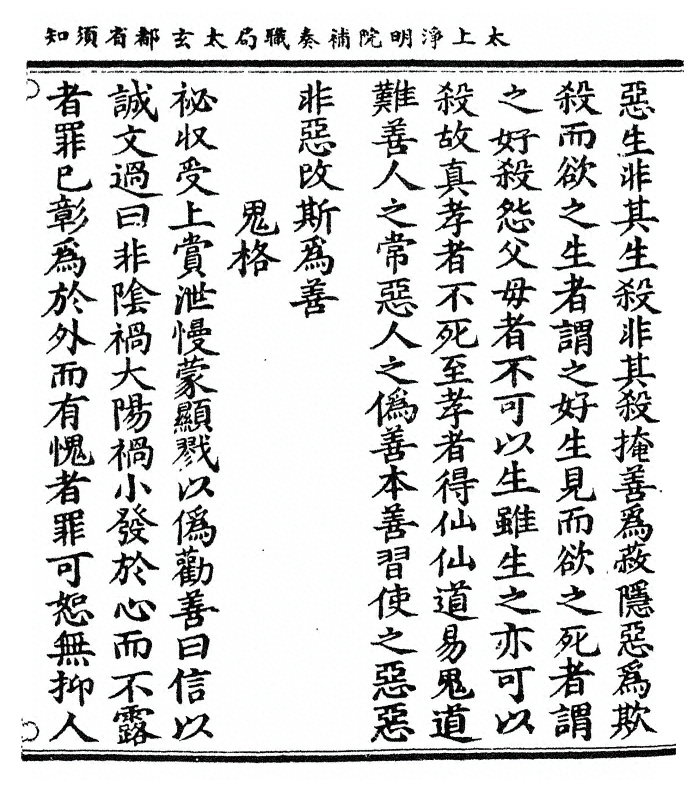 太上淨明院補奏職局太玄都省須知
惡生非其生殺非其殺掩善爲蔽隱惡爲欺
殺而欲之生者謂之好生見而欲之死者謂
之好殺怨父母者不可以生雖生之亦可以
殺故真孝者不死至孝者得仙仙道易鬼道
難善人之常惡人之僞善本善習使之惡惡
非惡改斯爲善
鬼格
祕収受上賞泄慢蒙顯戮以僞勸善曰信以
誠文過曰非陰禍大陽禍小發於心而不露
者罪已彰爲於外而有愧者罪可恕無抑人